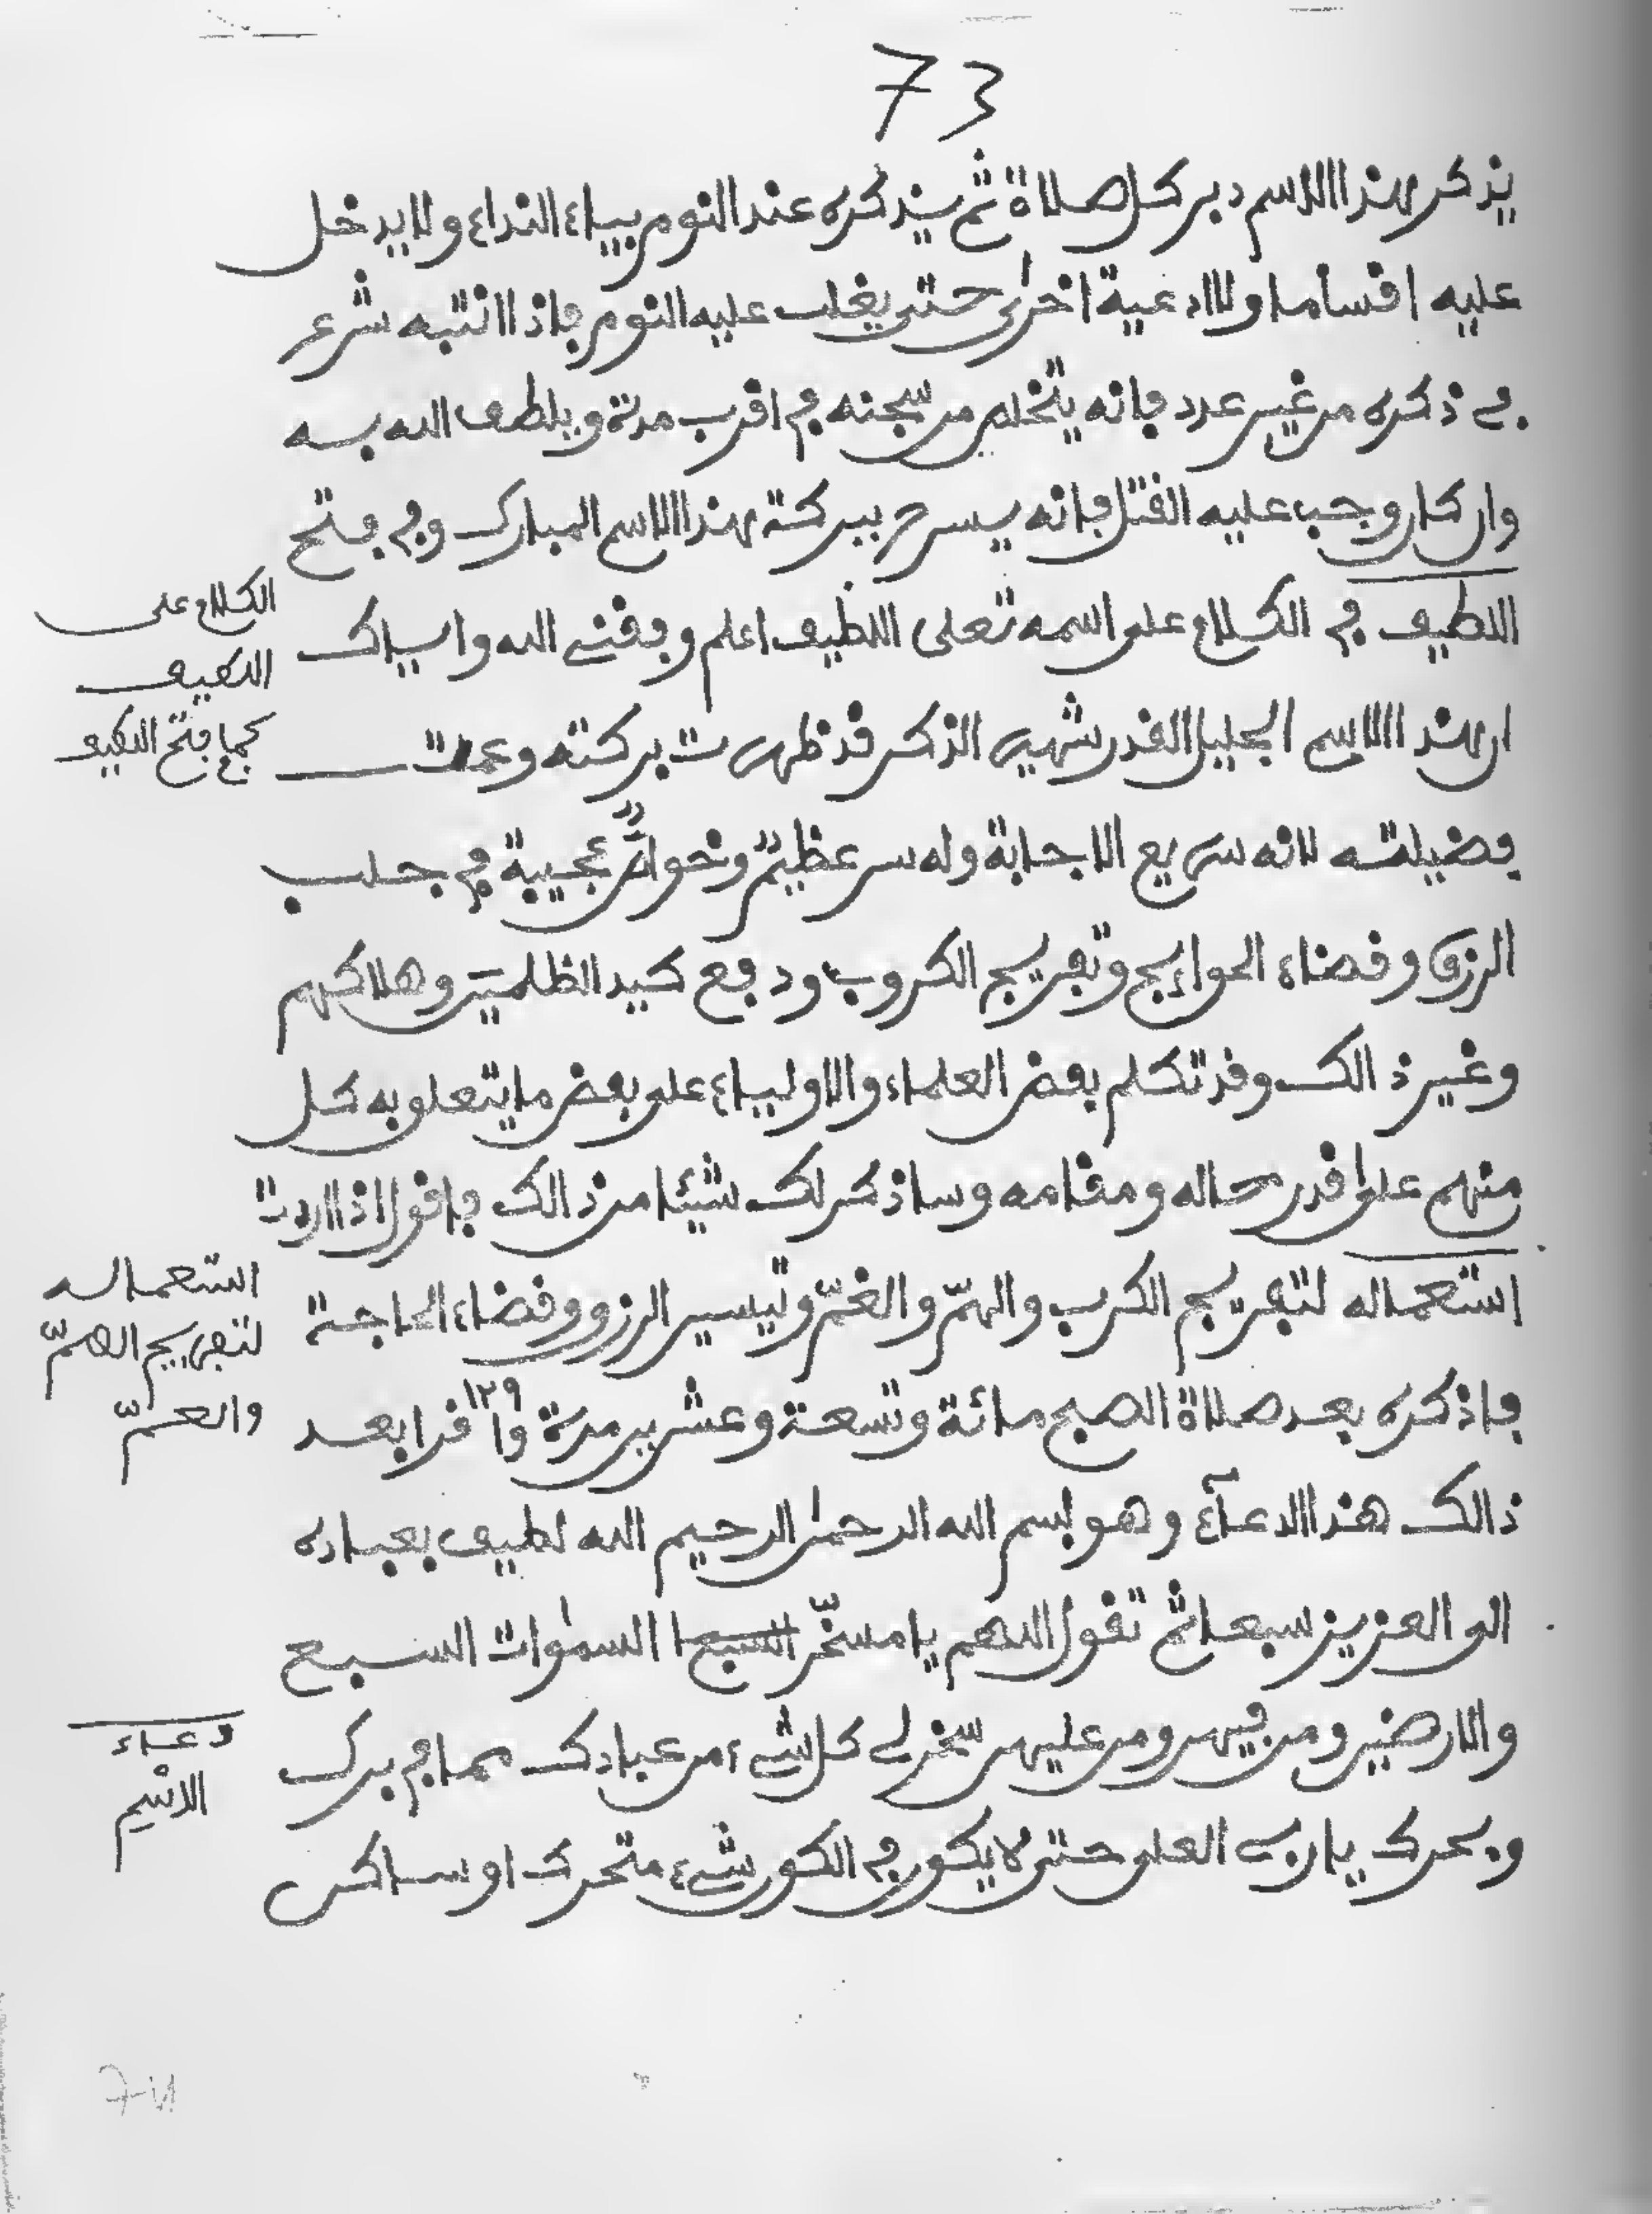 73
يذكر هذا الاسم دبر كل صلاة ثم يذكره عند النوم بياء النداء ولا يدخل
عليه اقساما ولا ادعية اخرى حتى يغلب عليه النوم فإذا انتبه شرع
في ذكره من غير عدد فإنه يتخلص من سجنه في اقرب مدة ويلطف الله به
وان كان وجب عليه القتل فإنه يسرح ببركة هذا الاسم المبارك وفي فتح
اللطيف في الكلام على اسمه تعلى اللطيف اعلم وفقني الله واياك
ان هذا الاسم الجليل القدر شهير الذكر قد ظهرت بركته وعمت
فضيلته لانه سريع الاجابة وله سر عظيم وخواص عجيبة في جلب
الرزق وقضاء الحوايج وتفريج الكروب ودفع كيد الظلمين وهلاكهم
وغير ذالك وقد تكلم بعض العلماء والاولياء على بعض ما يتعلق به كل
منهم على قدر حاله ومقامه وساذكر لك شيئا من ذالك فاقول اذا اردت
استعماله لتفريج الكرب والهمّ والغمّ وتيسير الرزق وقضاء الحاجة
فاذكره بعد صلاة الصبح مائة وتسعة وعشرين مرة ١٢٩ واقرا بعد
ذالك هذا الدعآء وهو بسم الله الرحمن الرحيم الله لطيف بعباده
الى العزيز سبعا ثم تقول اللهم يا مسخّر السبع السموات السبع
والارضين ومن فيهن ومن عليهن سخر لي كل شيء من عبادك مما في برك
وبحرك يا رب العلى حتى لا يكون في الكون شيء متحرك او ساكن
الكلام على
اللطيف
كما فتح اللطيف
استعماله
لتفريج الهمّ
والغمّ
دعاء
الاسم